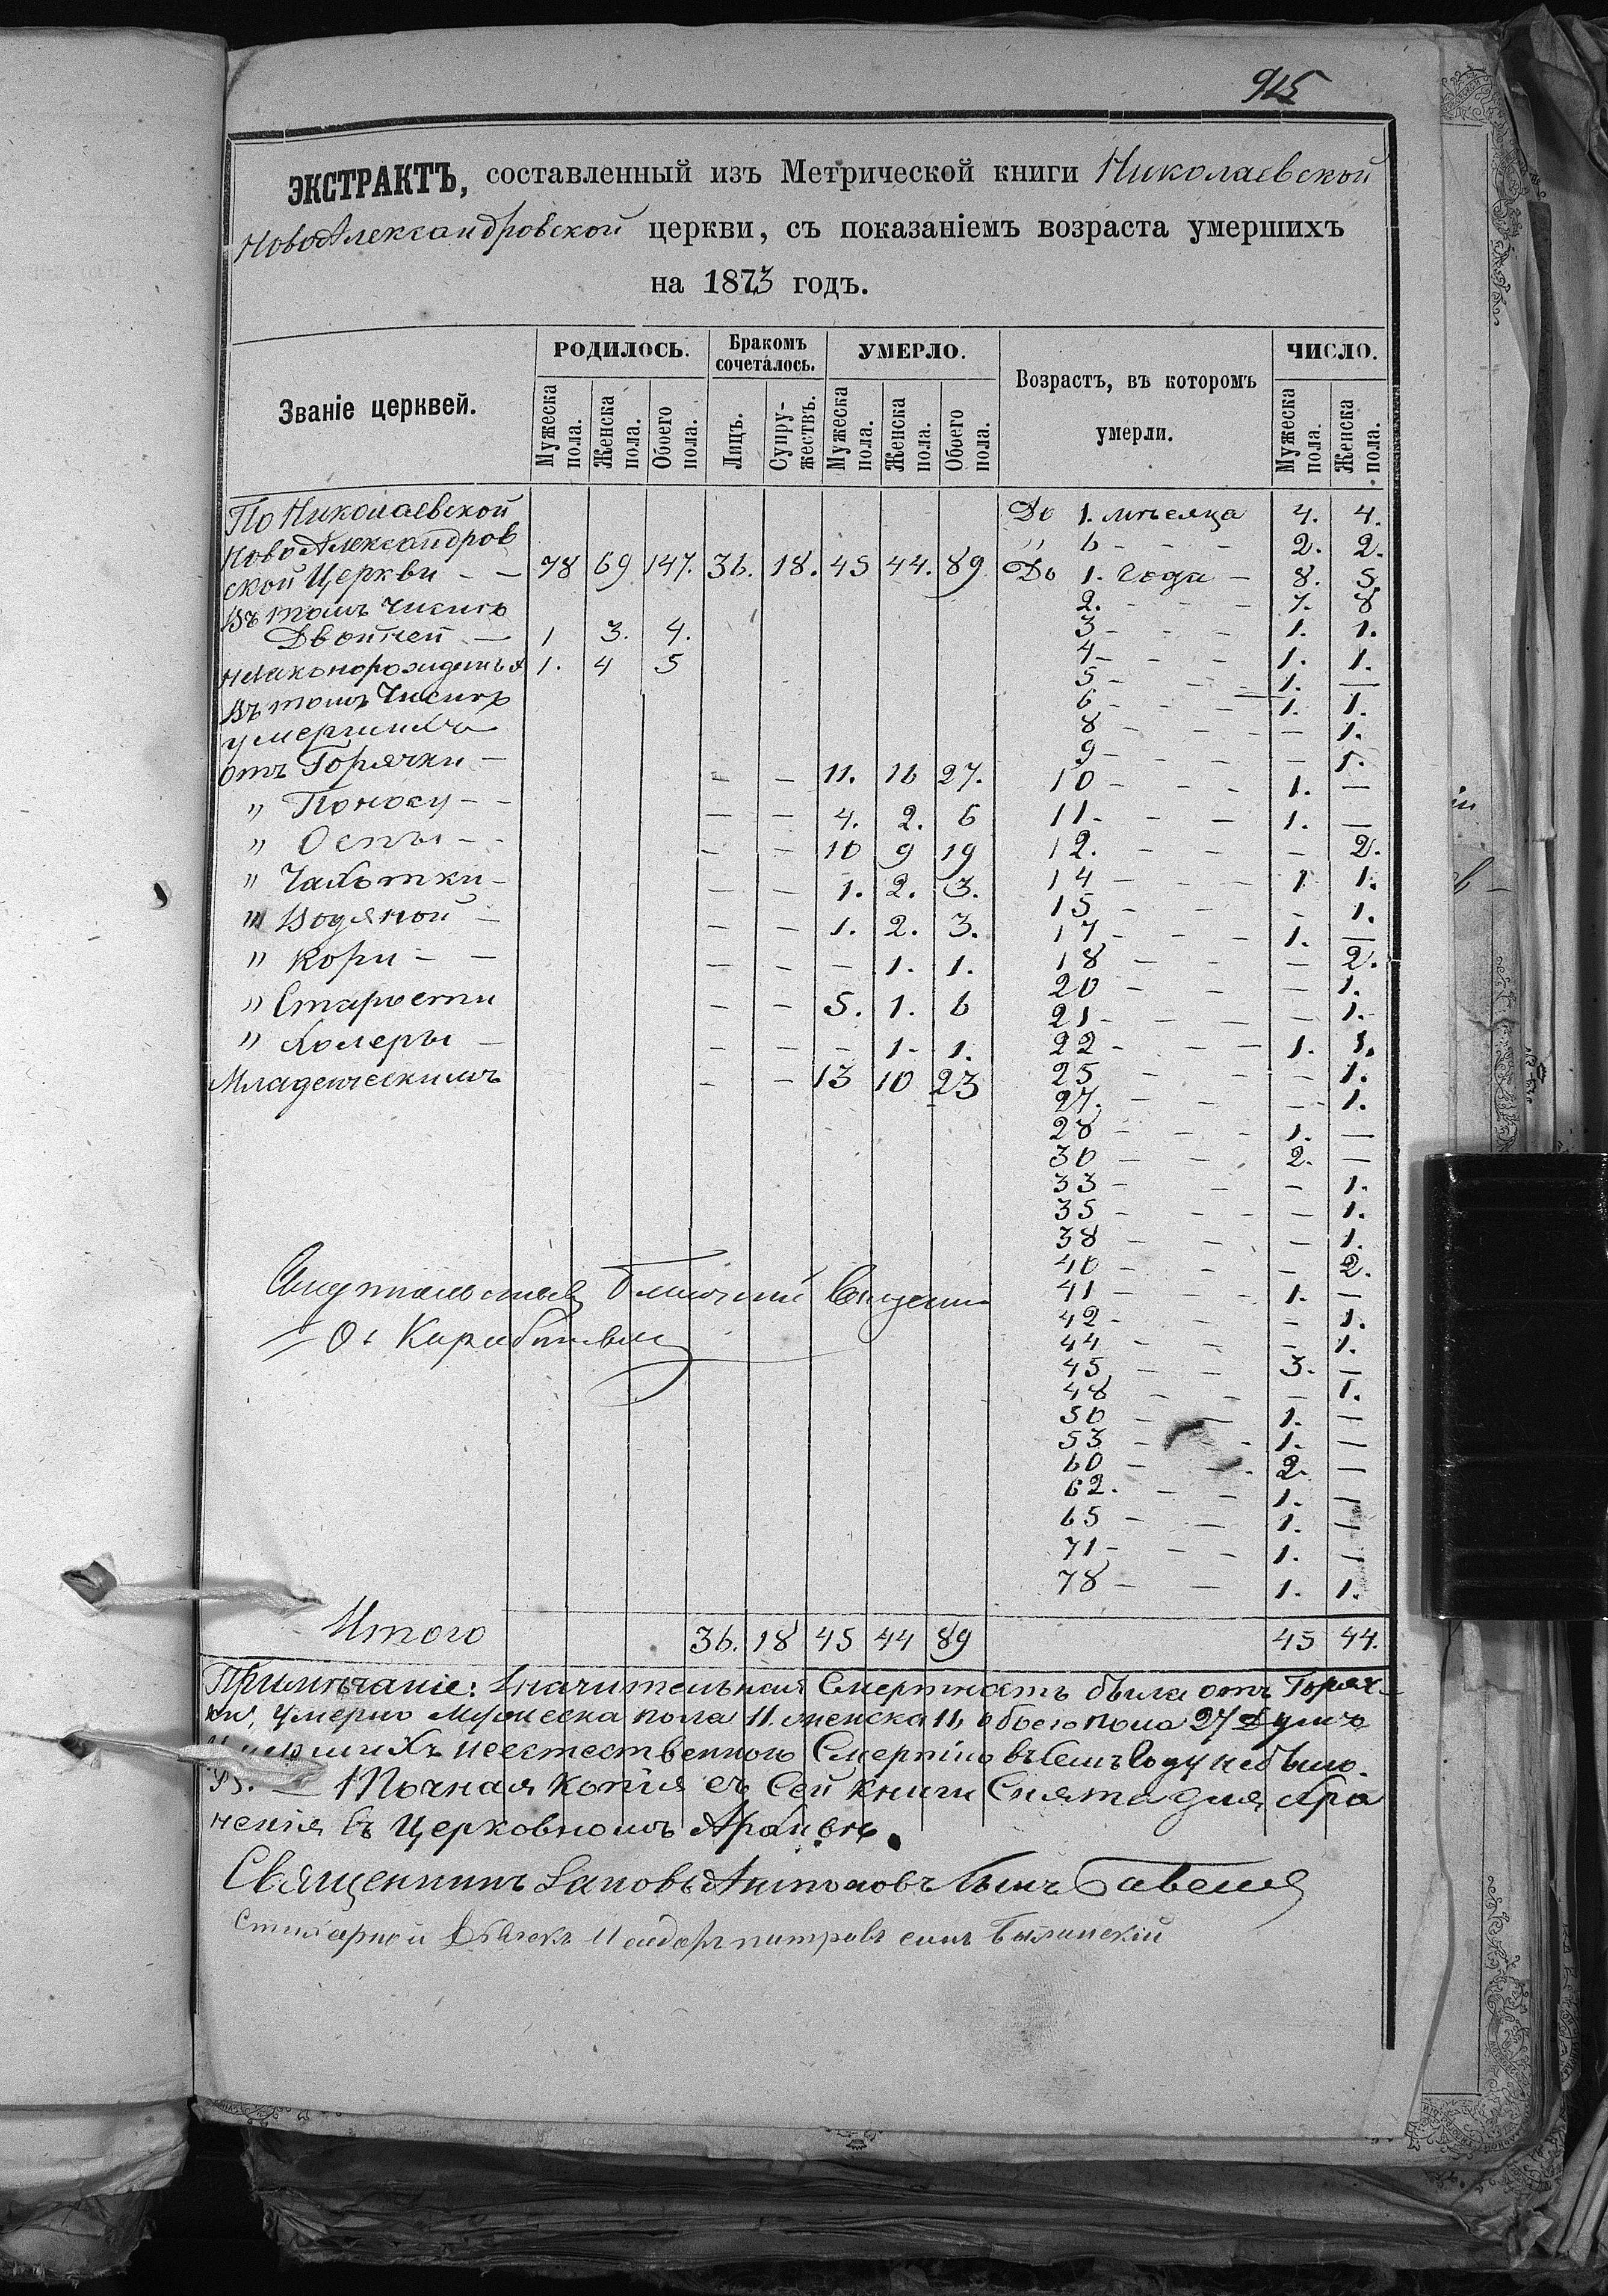 915
ЭКСТРАКТЪ, составленный изъ Метрической книги Николаевской
НовоАлександровской церкви, съ показаніемъ возраста умершихъ
на 1873 годъ.
Званіе церквей. РОДИЛОСЬ. Бракомъ сочеталось. УМЕРЛО. Возрастъ, въ которомъ умерли. ЧИСЛО.
Мужеска пола. Женска пола. Обоего пола. Лицъ. Супружествъ. Мужеска пола. Женска пола. Обоего пола. Мужеска пола. Женска пола.
По Николаевской
НовоАлександров
ской Церкви – – 78 69 147. 36. 18. 45 44. 89
Въ томъ числѣ
Двойней – 1 3. 4.
незаконорожденныя 1. 4 5
Въ томъ Числѣ
умершихъ
отъ Горячки – – – 11. 16 27.
" Поносу – – – – 4. 2. 6
" Оспы – – – – 10 9 19
" Чахотки – – – 1. 2. 3.
" Водяной – – – 1. 2. 3.
" Кори – – – – – 1. 1.
" Старости – – 5. 1. 6
" Холеры – – – – 1. 1.
Младенческимъ – – 13 10 23
До 1. мѣсяца 4. 4.
" 6 – – – 2. 2.
До 1. Года – 8. 5
2. – – – 7. 8
3 – – – 1. 1.
4 – – – 1. 1.
5 – – – 1. —
6 – – – 1. 1.
8 – – – – 1.
9 – – – – 1.
10 – – – 1. —
11. – – 1. —
12. – – – 2.
14 – – – 1 1.
15 – – – 1.
17 – – – 1. —
18 – – – 2.
20 – – – 1.
21 – – – – 1.
22 – – – 1. 1.
25 – – – 1.
27. – – – 1.
28 – – – 1. —
30 – – – 2. —
33 – – – 1.
35 – – – – 1.
38 – – – 1.
40 – – – 2.
41 – – – 1. —
42 – – – 1.
44 – – – 1.
45 – – 3. —
48 – – – 1.
50 – – 1. —
53 – – 1. —
60 – – 2. —
62. – – 1. —
65 – – 1. —
71 – – – 1. —
78 – – 1. 1.
Итого 36. 18 45 44 89 45 44.
Примѣчаніе: Значительная Смертность была отъ Горяч
ки, умерло мужеска пола 11. женска 16, обоего пола 27 душъ
неестественною Смертію въ семъ Году небыло.
Точная копія съ Сей книги Снята для хра
ненія въ Церковномъ Архивѣ.
Священникъ Антоновъ Сынъ